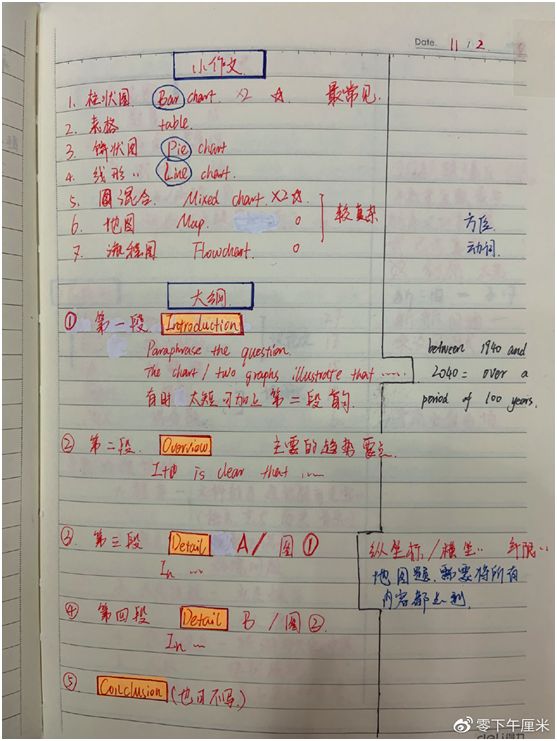 Date. 11 / 2
小作文
1. 柱状图 Bar chart. ×2 ☆ 最常见.
2. 表格 table.
3. 饼状图 Pie chart
4. 线形〃 Line chart.
5. 图混合. Mixed chart. ×2 ☆
6. 地图 Map. 0
7. 流程图 Flowchart. 0
较复杂
方位
动词.
大纲
① 第一段. Introduction
Paraphrase the question.
The chart / two graphs illustrate that ……
有时 太短可加上 第二段首句
between 1940 and
2040 = over a
period of 100 years.
② 第二段. Overview 主要的趋势 要点.
It is clear that ……
③ 第三段 Detail A / 图①
In …
纵坐标 / 横坐〃
地图题. 需要将所有
内容都
④ 第四段 Detail B / 图②
In …
⑤ Conclusion (也可不写)
deli
零下午厘米